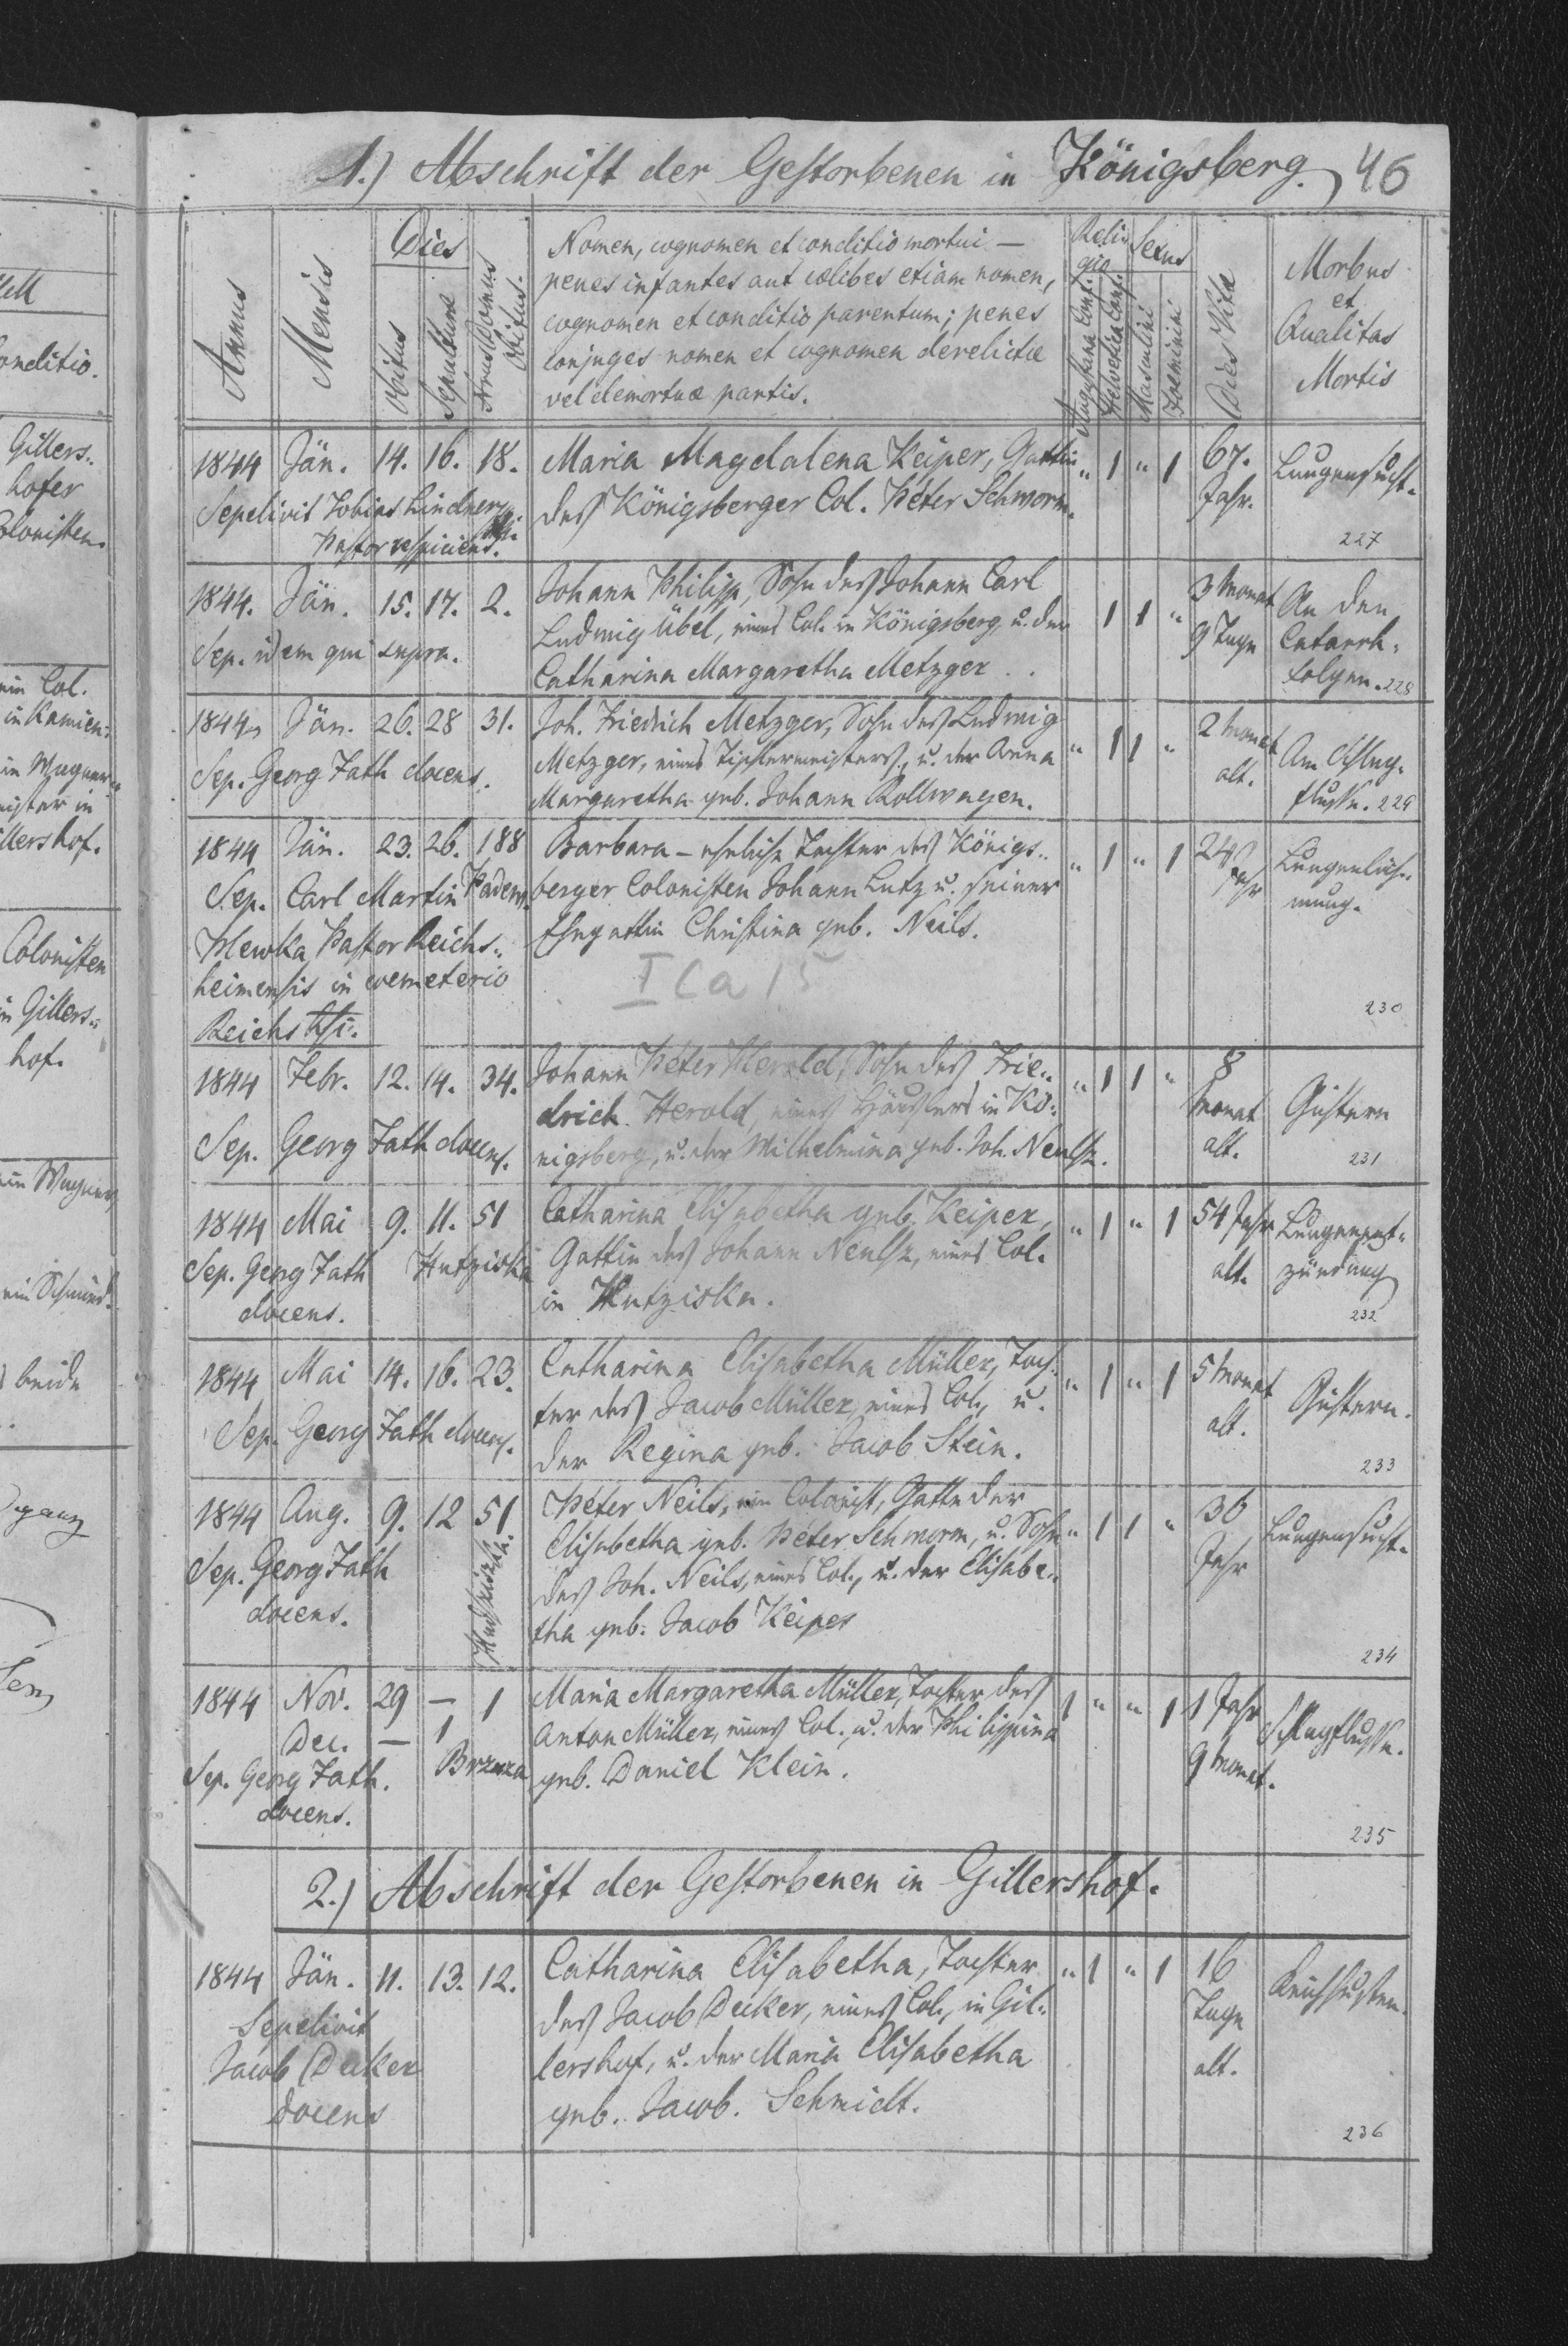 1.) Abschrift der Gestorbenen in Königsberg. 46
Annus
Mensis
Dies
Obitus
Sepulturæ
Nrus Domus Obitus.
Nomen, cognomen et conditio mortui —
penes infantes aut cœlibes etiam nomen,
cognomen et conditio parentum; penes
conjuges nomen et cognomen derelictæ
vel demortuæ partis.
Religio
Augustana Conf.
Helvetica Conf.
Sexus
Masculini
Foeminini
Dies Vitæ
Morbus
et
Qualitas
Mortis
1844 Jän. 14. 16. 18. Maria Magdalena Keiper, Gattin " 1 " 1 67. Lungensucht.
Sepelivit Tobias Lindner des Königsberger Col. Peter Schworm. Jahr.
Pastor respiciens. 227
1844. Jän. 15. 17. 2. Johann Philipp, Sohn des Johann Carl 3 Monat An den
Sep. idem qui supra. Ludwig Übel, eines Col. in Königsberg, u. der 1 1 " 9 Tage Catarrh-
Catharina Margaretha Metzger . . folgen. 228
1844 Jän. 26. 28 31. Joh. Friedrich Metzger, Sohn des Ludwig 2 Monat
Sep. Georg Fath docens. Metzger, eines Tischlermeisters, u. der Anna " 1 1 " alt. Am Schlag-
Margaretha geb. Johann Rollwagen. flusse. 229
1844 Jän. 23. 26. 188 Barbara – eheliche Tochter des Königs- " 1 " 1 24 Jahr Lungenläh-
Sep. Carl Martin Padew. berger Colonisten Johann Lutz u. seiner mung.
Hlewka Pastor Reichs- Ehegattin Christina geb. Neils.
heimensis in coemeterio I Ca 15
Reichs 230
1844 Febr. 12. 14. 34. Johann Peter Herold, Sohn des Frie- " 1 1 " 8
drich Herold, eines Häuslers in Kö- Monat Gichtern
Sep. Georg Fath docens. nigsberg, u. der Wilhelmina geb. Joh. alt. 231
1844 Mai 9. 11. 51 Catharina Elisabetha geb. Keiper, " 1 " 1 54 Jahr Lungenent-
Sep. Georg Fath Hutziska Gattin des Johann eines Col. alt. zündung
docens. in Hutziska. 232
1844 Mai 14. 16. 23. Catharina Elisabetha Müller, Toch- " 1 " 1 5 Monat
Sep. Georg Fath docens. ter des Jacob Müller, eines Col., u. alt. Gichtern.
der Regina geb. Jacob Stein. 233
1844 Aug. 9. 12 51. Peter Neils, ein Colonist, Gatte der 36
Elisabetha geb. Peter Schworm, u. Sohn " 1 1 " Jahr Lungensucht.
Sep. Georg Fath des Joh. Neils, eines Col., u. der Elisabe-
docens. tha geb. Jacob Keiper
234
1844 Nov. 29 — 1 Maria Margaretha Müller, Tochter des 1 " " 1 1 Jahr
Dec. — 1 Anton Müller, eines Col., u. der Philippina Schlagflusse.
Sep. Georg Fath. Brzuza geb. Daniel Klein. 9 Monat.
docens.
235
2.) Abschrift der Gestorbenen in Gillershof.
1844 Jän. 11. 13. 12. Catharina Elisabetha, Tochter " 1 " 1 16 Keichhusten.
Sepelivit des Jacob Decker, eines Col., in Gil- Tage
Jacob Decker lershof, u. der Maria Elisabetha alt.
docens geb. Jacob. Schmidt.
236
Gillers-
hofer
Colonisten.
ein Col.
in Kamien-
ein Wagner-
meister in
illershof.
Colonisten
in Gillers-
hof.
ein Wagner
beide